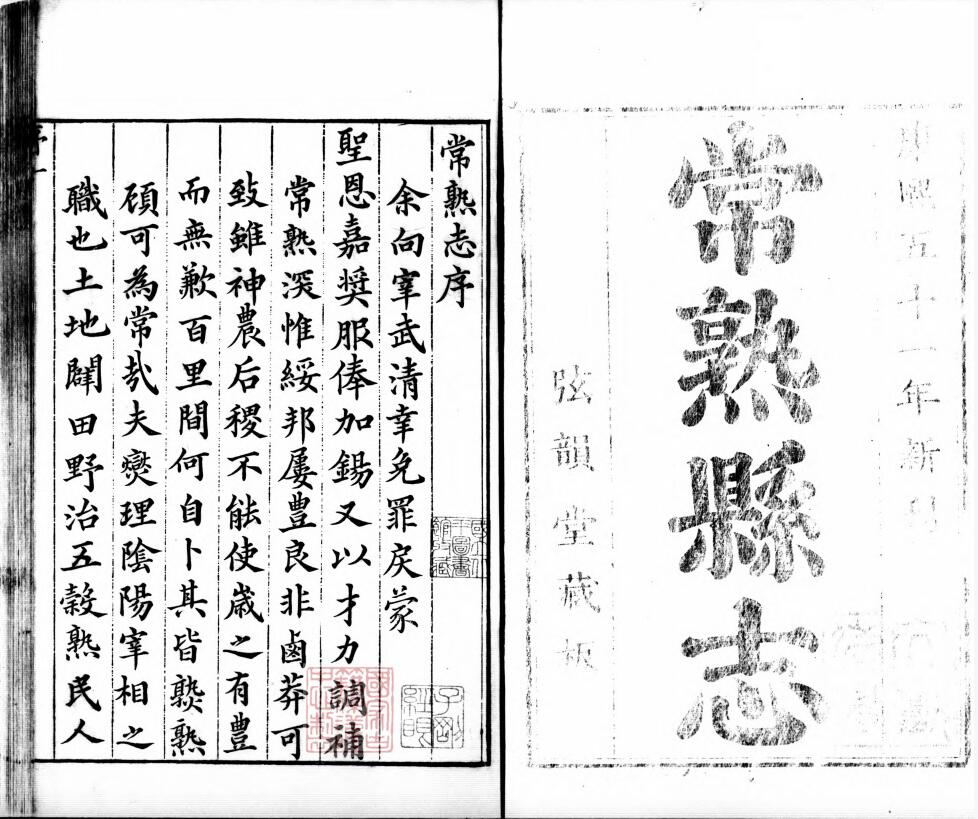 康熙五十一年新刊
常熟縣志
弦韻堂藏板
常熟志序
余向宰武清幸免罪戾蒙
聖恩嘉奬服俸加錫又以才力調補
常熟深惟綏邦屢豊良非鹵莽可
致雖神農后稷不能使歲之有豊
而無歉百里間何自卜其皆熟熟
頋可為常㢤夫燮理陰陽宰相之
職也土地闢田野治五穀熟民人